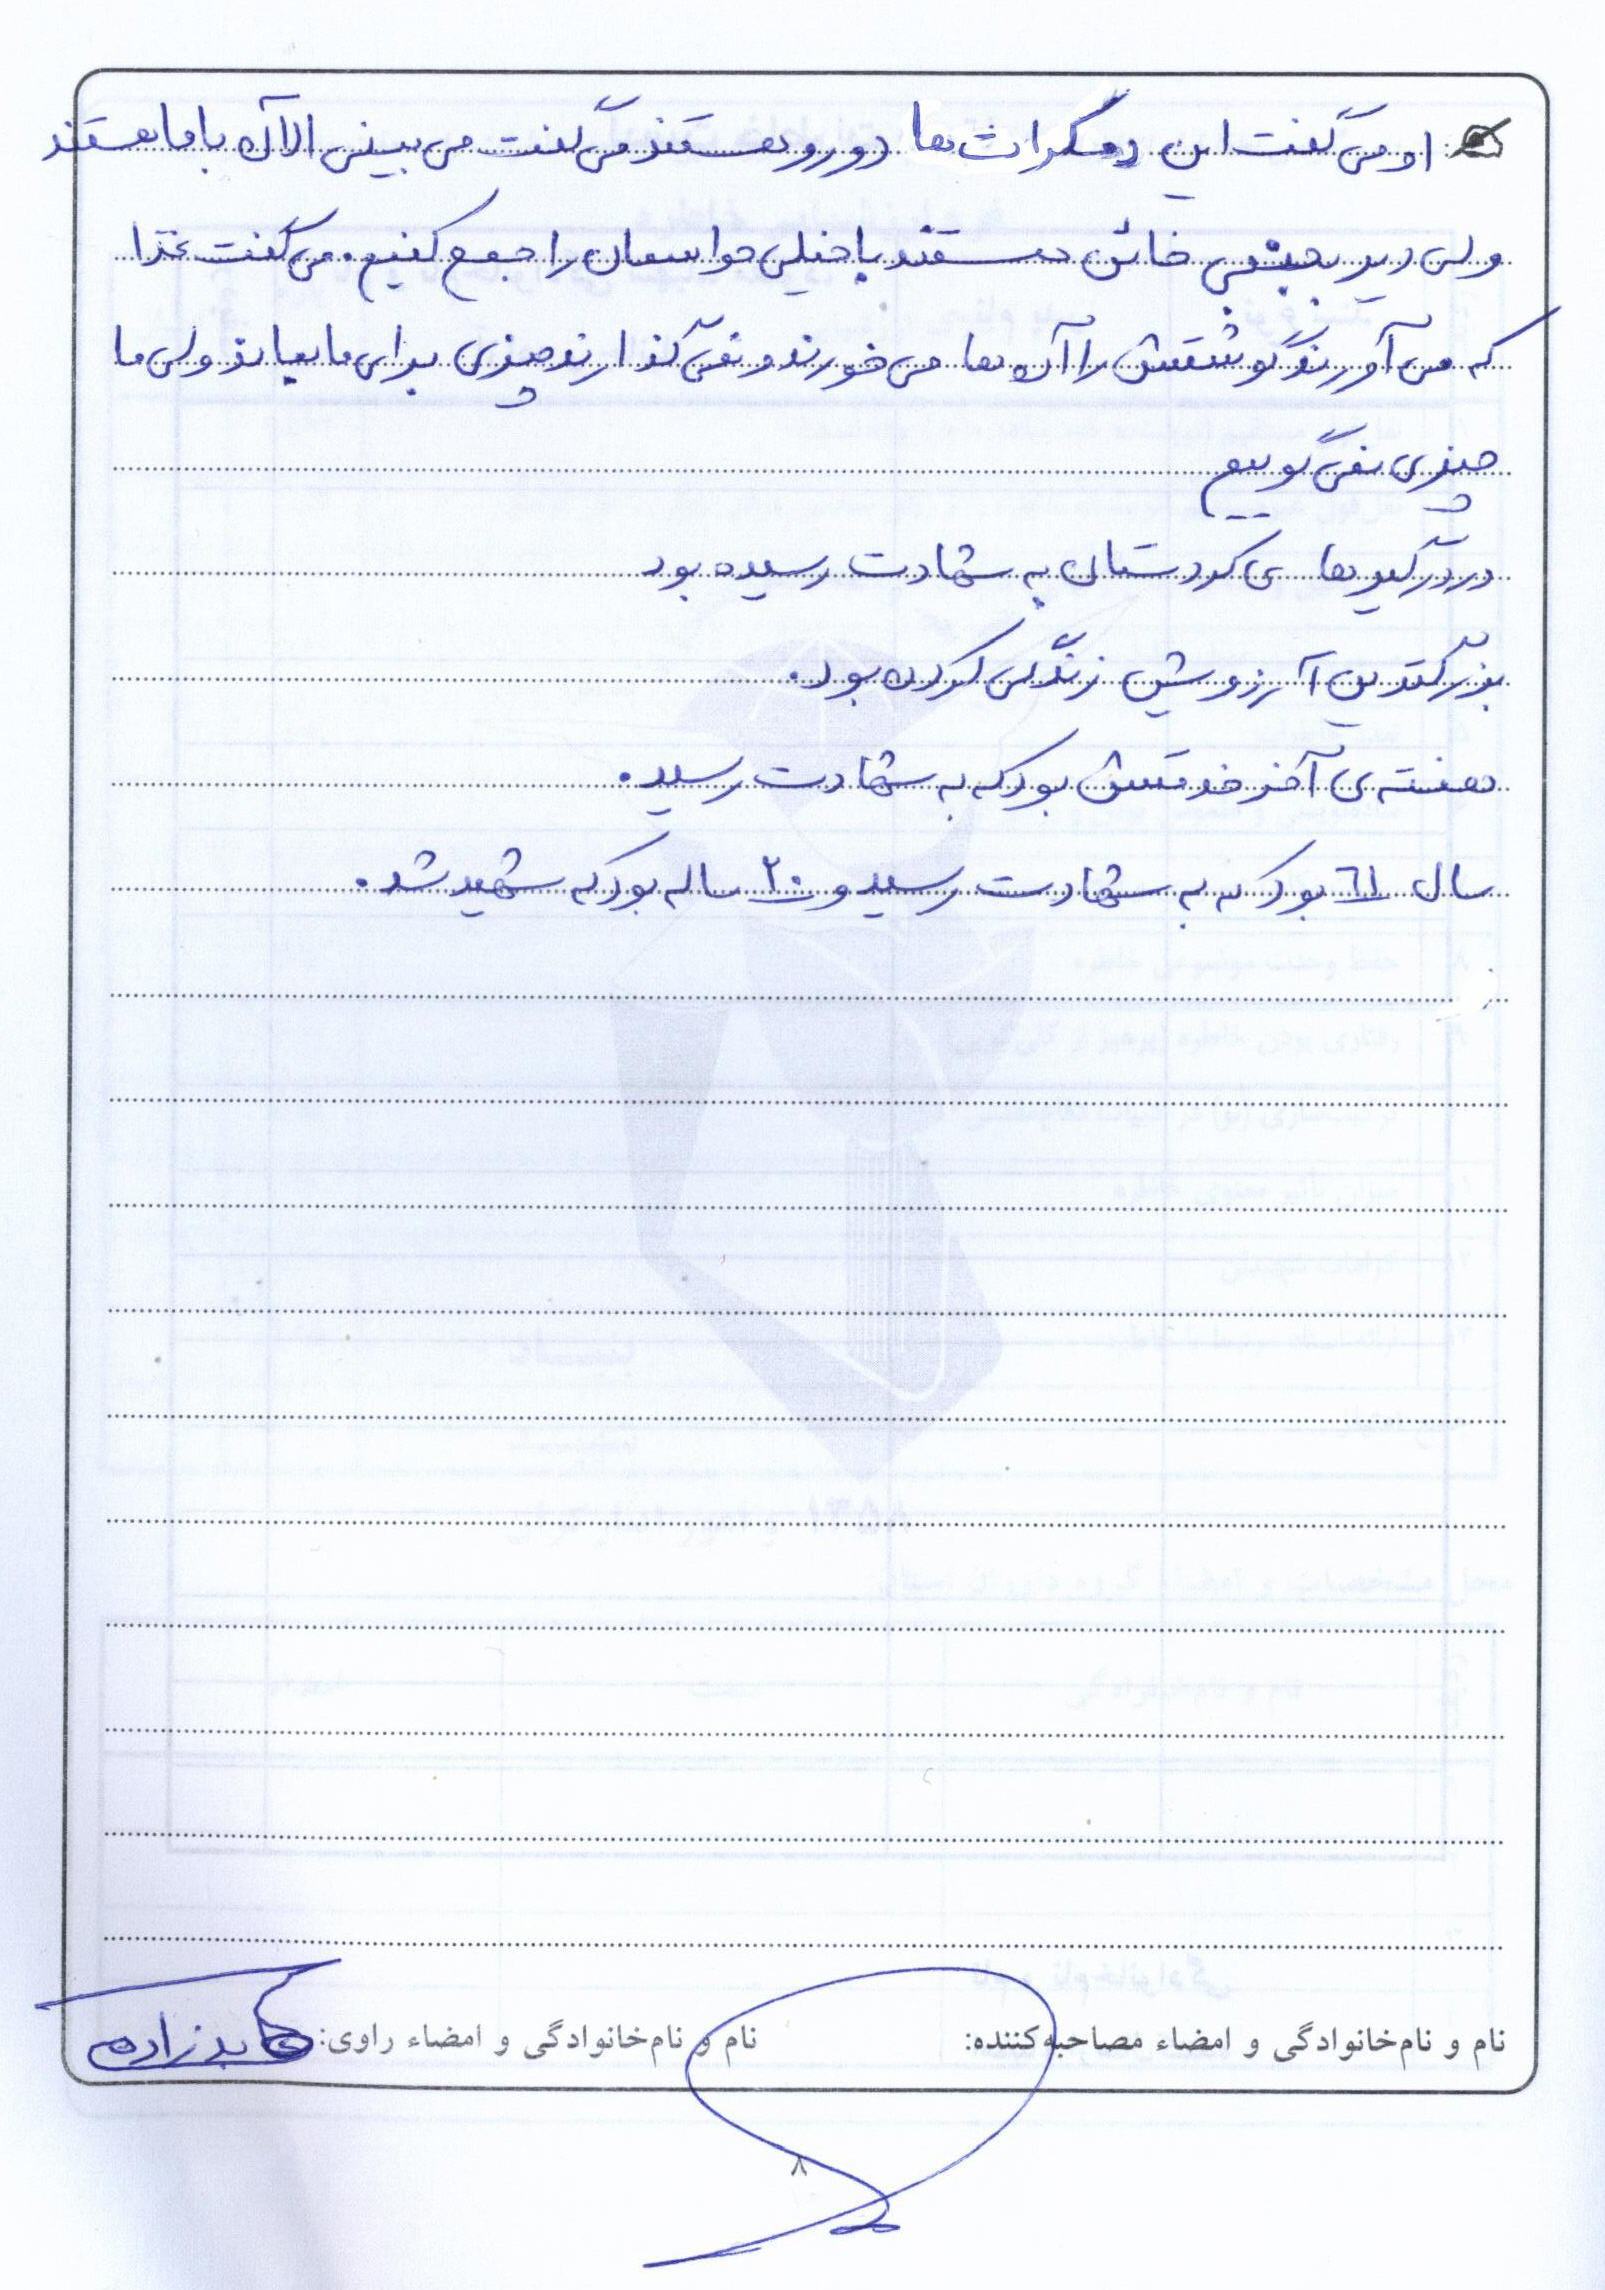 او می‌گفت این دمکرات‌ها دورو هستند می‌گفت می‌بینی الان با ما هستند
ولی در خائن هستند با خیلی حواسمان را جمع کنیم. می‌گفت غذا
که می‌آورند گوشتش را آن‌ها می‌خورند و نمی‌گذارند چیزی برای ما بماند ولی ما
چیزی نمی‌گوییم
در درگیری‌های کردستان به شهادت رسیده بود
بزرگترین آرزویش زندگی کردن بود.
هفته‌ی آخر خدمتش بود که به شهادت رسید.
سال ٦١ بود که به شهادت رسید و ٢٠ ساله بود که شهید شد.
نام و نام‌خانوادگی و امضاء مصاحبه‌کننده: نام و نام‌خانوادگی و امضاء راوی: عابدزاده
۸